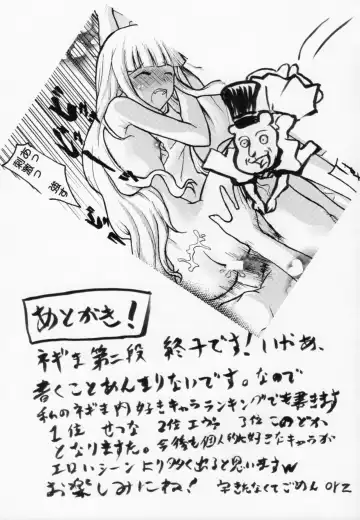 あとがき!
ネギま第二段 終了です!いやぁ、
書くことあんまりないです。なので
私のネギま内好きキャラランキングでも書きます
1位 せつな 2位 エヴァ 3位 このどか
となりますた。今後も個人的に好きなキャラが
エロいシーンより多く出ると思いますw
お楽しみにね! 字きたなくてごめん orz